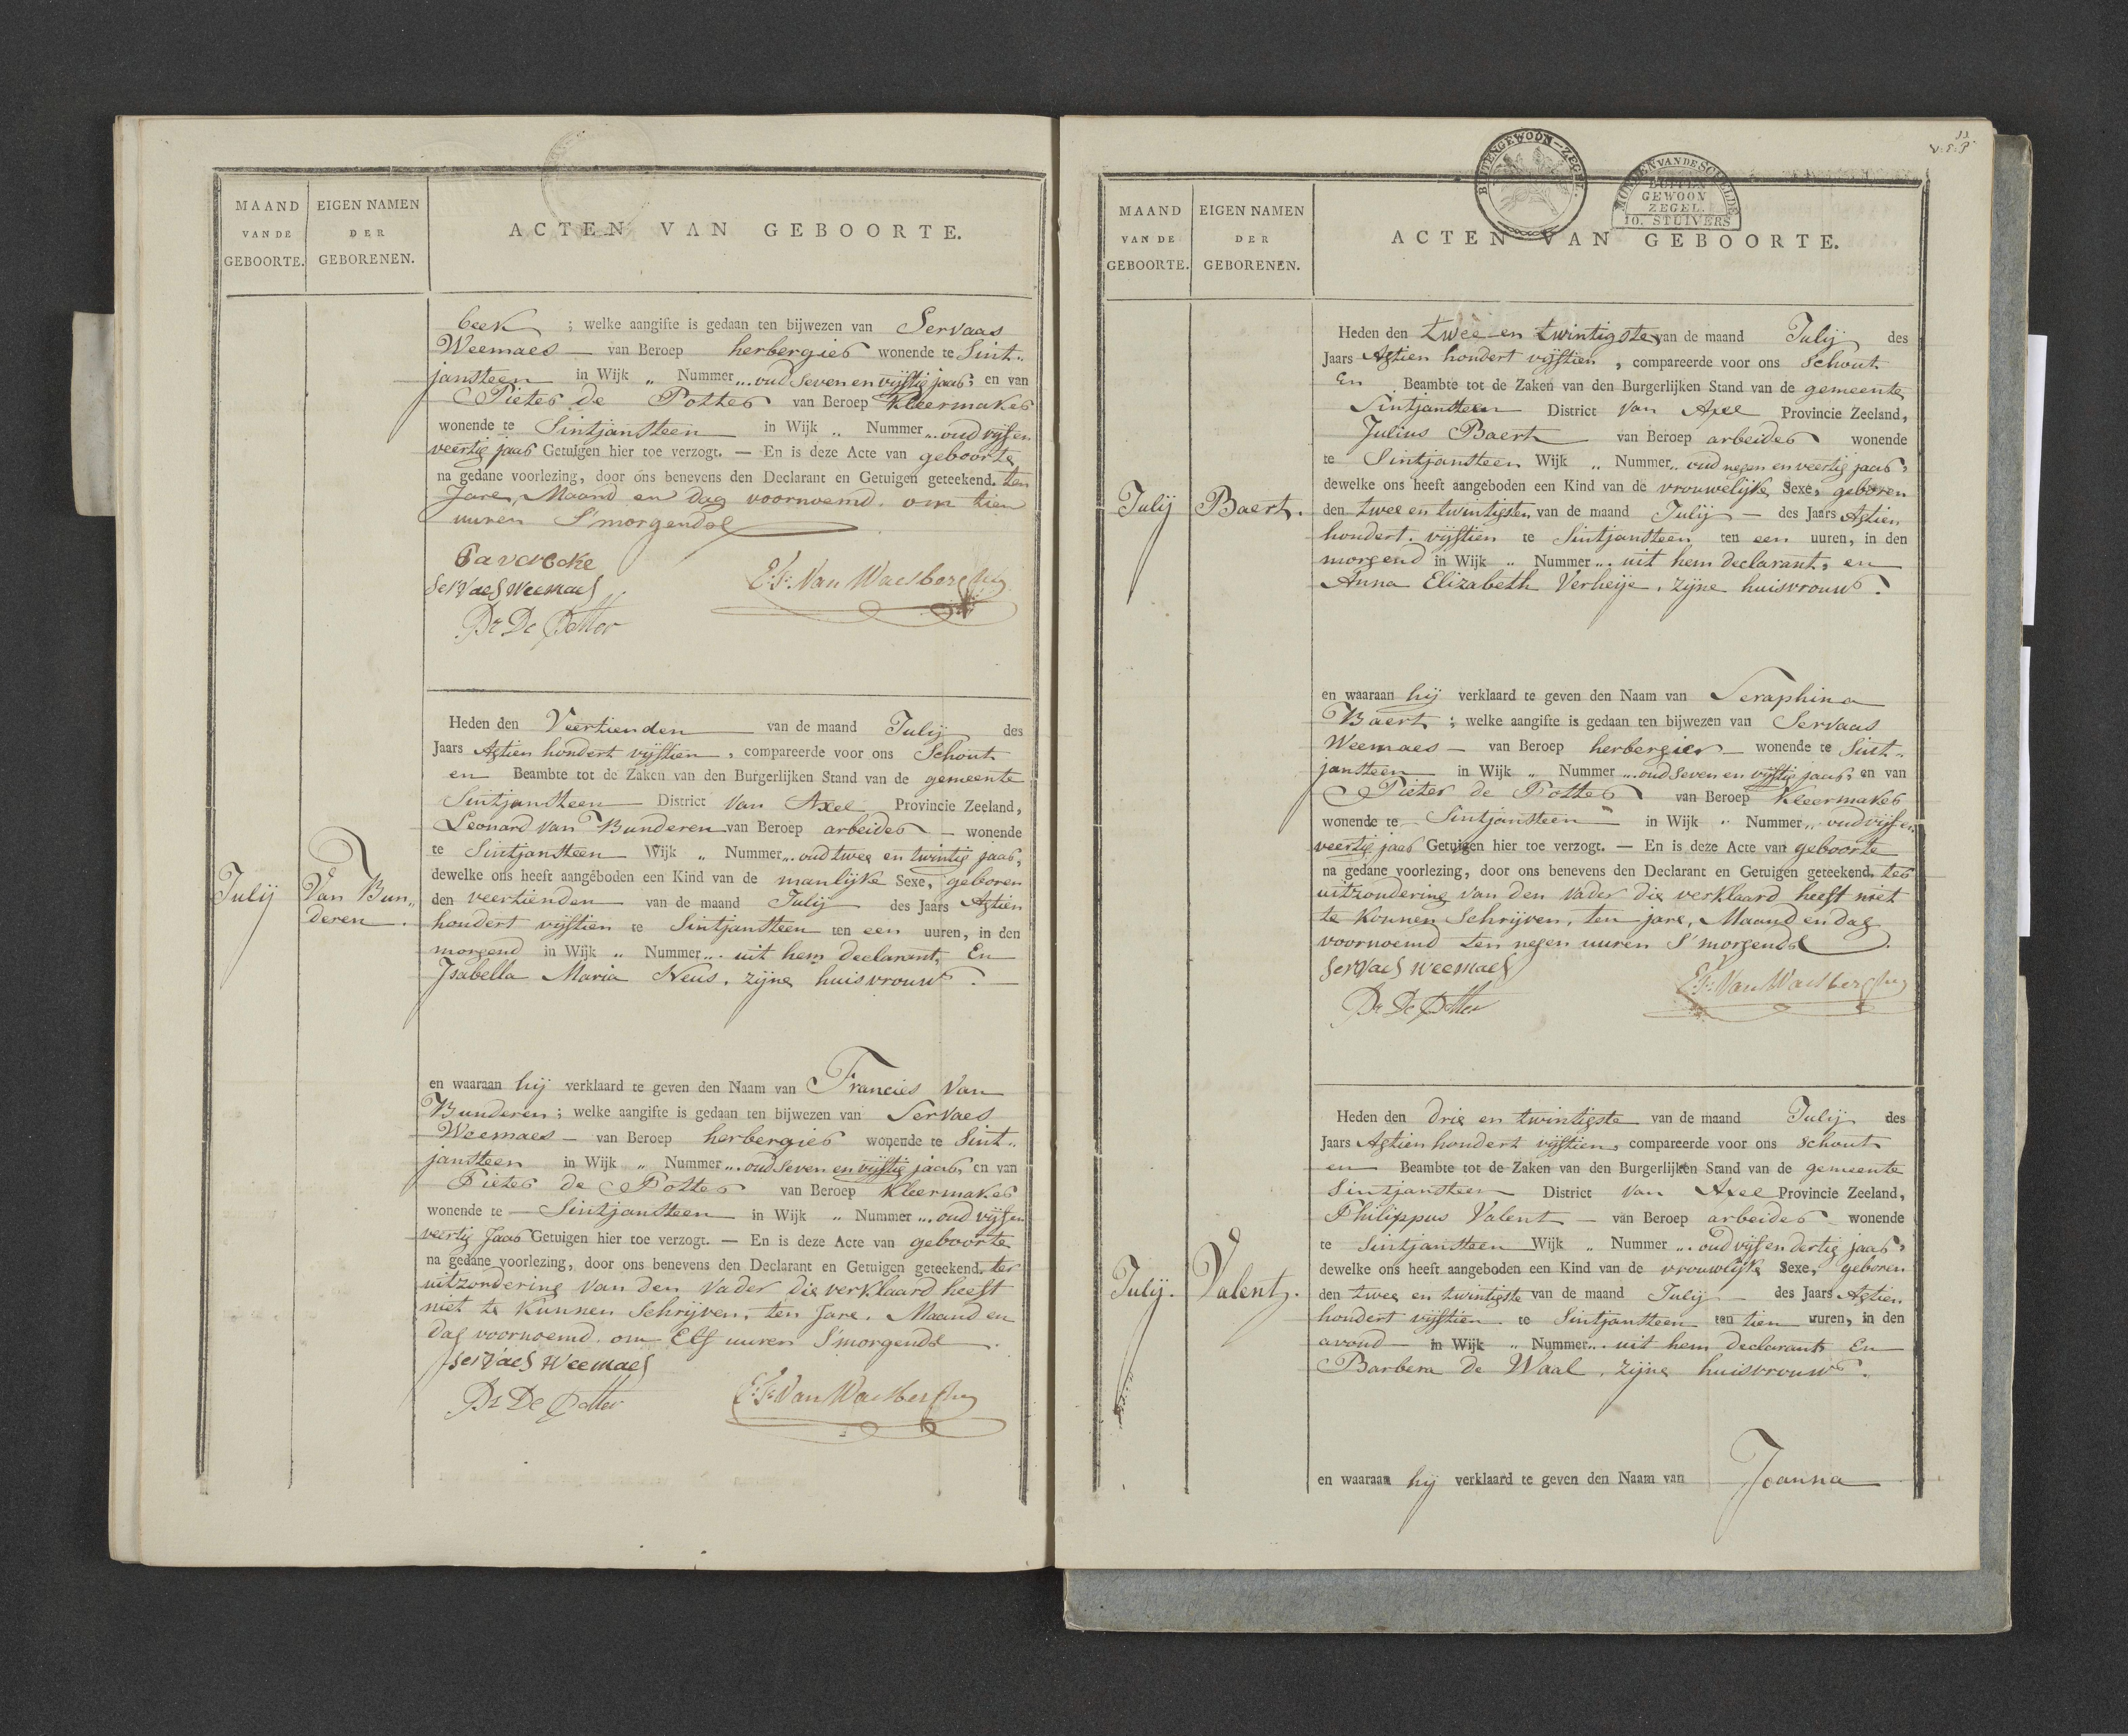 MAAND
VAN DE
GEBOORTE.
EIGEN NAMEN
DER
GEBORENEN.
ACTEN VAN GEBOORTE.
beek ; welke aangifte is gedaan ten bijwezen van Servaas
Weemaes — van Beroep herbergier wonende te Sint„
jansteen in Wijk „ Nummer „. oud seven en vijftig jaar; en van
Pieter de Potter van Beroep Kleermaker
wonende te Sintjansteen in Wijk „ Nummer „. oud vijf en
veertig jaar Getuigen hier toe verzogt. — En is deze Acte van geboorte
na gedane voorlezing, door ons benevens den Declarant en Getuigen geteekend. ten
Jare, Maand en dag voornoemd. om tien
uuren S'morgends
Servaes Weemaes
E:F: Van Waesberghe
Pr De Potter
Julij
Van Bun„
deren.
Heden den Veertienden van de maand Julij des
Jaars Agtien hondert vijftien, compareerde voor ons Schout
en Beambte tot de Zaken van den Burgerlijken Stand van de gemeente
Sintjansteen District Van Axel Provincie Zeeland,
Leonard Van Bunderen van Beroep arbeider — wonende
te Sintjansteen Wijk „ Nummer „. oud twee en twintig jaar,
dewelke ons heeft aangeboden een Kind van de manlijke Sexe, geboren
den veertienden van de maand Julij des Jaars Agtien
hondert vijftien te Sintjansteen ten een uuren, in den
morgend in Wijk „ Nummer „. uit hem declarant, En
Isabella Maria Neus, zijne huisvrouw. —
en waaraan hij verklaard te geven den Naam van Francies Van
Bunderen ; welke aangifte is gedaan ten bijwezen van Servaes
Weemaes — van Beroep herbergier wonende te Sint„
jansteen in Wijk „ Nummer „. oud seven en vijftig jaar, en van
Pieter de Potter van Beroep Kleermaker
wonende te — Sintjansteen in Wijk „ Nummer „. oud vijf en
veertig Jaar Getuigen hier toe verzogt. — En is deze Acte van geboorte
na gedane voorlezing, door ons benevens den Declarant en Getuigen geteekend. ter
uitzondering van den Vader die verklaard heeft
niet te kunnen Schrijven, ten Jare, Maand en
dag voornoemd. om Elf uuren S'morgends.
Servaes Weemaes
Pr De Potter
E:F: Van Waesberghe
BUITENGEWOON-ZEGEL.
MONDEN VAN DE SCHELDE
BUITEN
GEWOON
ZEGEL.
10. STUIVERS
MAAND
VAN DE
GEBOORTE.
EIGEN NAMEN
DER
GEBORENEN.
ACTEN VAN GEBOORTE.
Julij
Baert.
Heden den twee en twintigste van de maand Julij des
Jaars Agtien hondert vijftien, compareerde voor ons Schout
En Beambte tot de Zaken van den Burgerlijken Stand van de gemeente
Sintjansteen District Van Axel Provincie Zeeland,
Julius Baert van Beroep arbeider wonende
te Sintjansteen Wijk „ Nummer „. oud negen en veertig jaar,
dewelke ons heeft aangeboden een Kind van de vrouwelijke Sexe, geboren
den twee en twintigsten van de maand Julij — des Jaars Agtien
hondert. vijftien te Sintjansteen ten een uuren, in den
morgend in Wijk „ Nummer „. uit hem declarant, en
Anna Elizabeth Verheije, zijne huisvrouw.
en waaraan hij verklaard te geven den Naam van Seraphina
Baert ; welke aangifte is gedaan ten bijwezen van Servaas
Weemaes — van Beroep herbergier — wonende te Sint„
jansteen in Wijk „ Nummer „. oud seven en vijftig jaar, en van
Pieter de Potter van Beroep Kleermaker
wonende te — Sintjansteen — in Wijk „ Nummer „. oud vijf en
veertig jaar Getuigen hier toe verzogt. — En is deze Acte van geboorte
na gedane voorlezing, door ons benevens den Declarant en Getuigen geteekend. ter
uitzondering van den Vader die verklaard heeft niet
te konnen Schrijven, ten jare, Maand en dag
voornoemd ten negen uuren S'morgends.
Servaes Weemaes
E:F: Van Waesberghe
Pr De Potter
Julij.
Valent.
Heden den drie en twintigste van de maand Julij des
Jaars Agtien hondert vijftien, compareerde voor ons Schout
en Beambte tot de Zaken van den Burgerlijken Stand van de gemeente
Sintjansteen District Van Axel Provincie Zeeland,
Philippus Valent — van Beroep arbeider wonende
te Sintjansteen Wijk „ Nummer „. oud vijf en dertig jaar,
dewelke ons heeft aangeboden een Kind van de vrouwlijke Sexe, geboren
den twee en twintigste van de maand Julij — des Jaars Agtien
hondert vijftien te Sintjansteen ten tien uuren, in den
avond — in Wijk „ Nummer „. uit hem declarant En
Barbera de Waal, zijne huisvrouw.
en waaraan hij verklaard te geven den Naam van Joanna